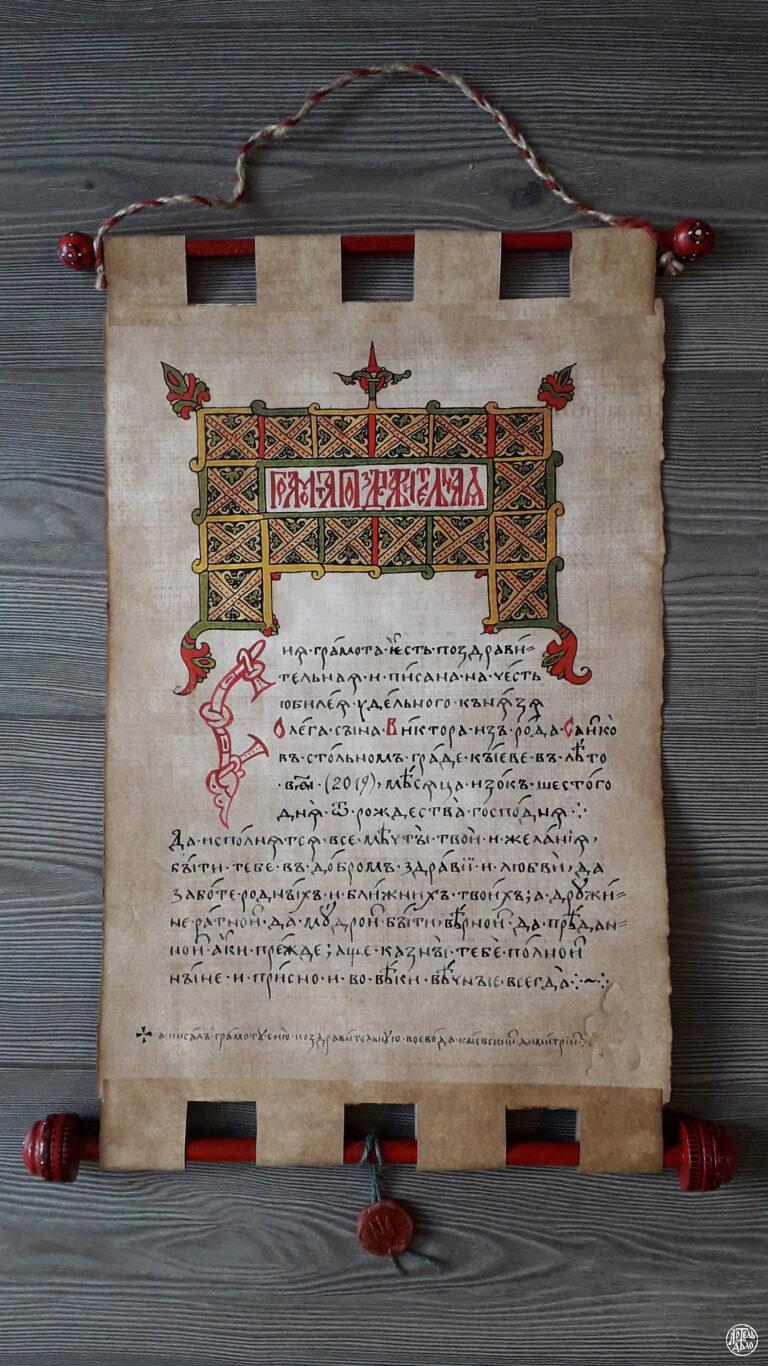 ГРАМОТА ПОЗДРАВИТЕЛЬНАЯ
Сиѧ·грамота·ѥсть·поздрави=
тельная·и·писана·на·честь
юбилеѧ·удельного·кънѧзѧ
Олега·сына·Виктора·изъ·рода·Санко
въ·стольномъ·граде·кыеве·въ·лѣто
(2019)·мѣсѧца·изокъ·шестого
днѧ·ѿ·рождества·господнѧ·:·
Да·исполнѧтсѧ·все·мечты·твои·и·желаніѧ,
быти·тебе·въ·добромъ·здравїи·и·любви,·да
заботе·родныхъ·и·ближнихъ·твоихъ;·а·дружи=
не·ратной·да·мудрой·быти,·вѣрной·да·предан=
ной·аки·прежде;·аще·казны·тебе·полной
ныне·и·присно·и·во·вѣки·вѣчныѥ·всегда·:~:·
а·писалъ·грамоту·сию·поздравительную·воевода·кыевский·димитрий:
Артель
дѣло